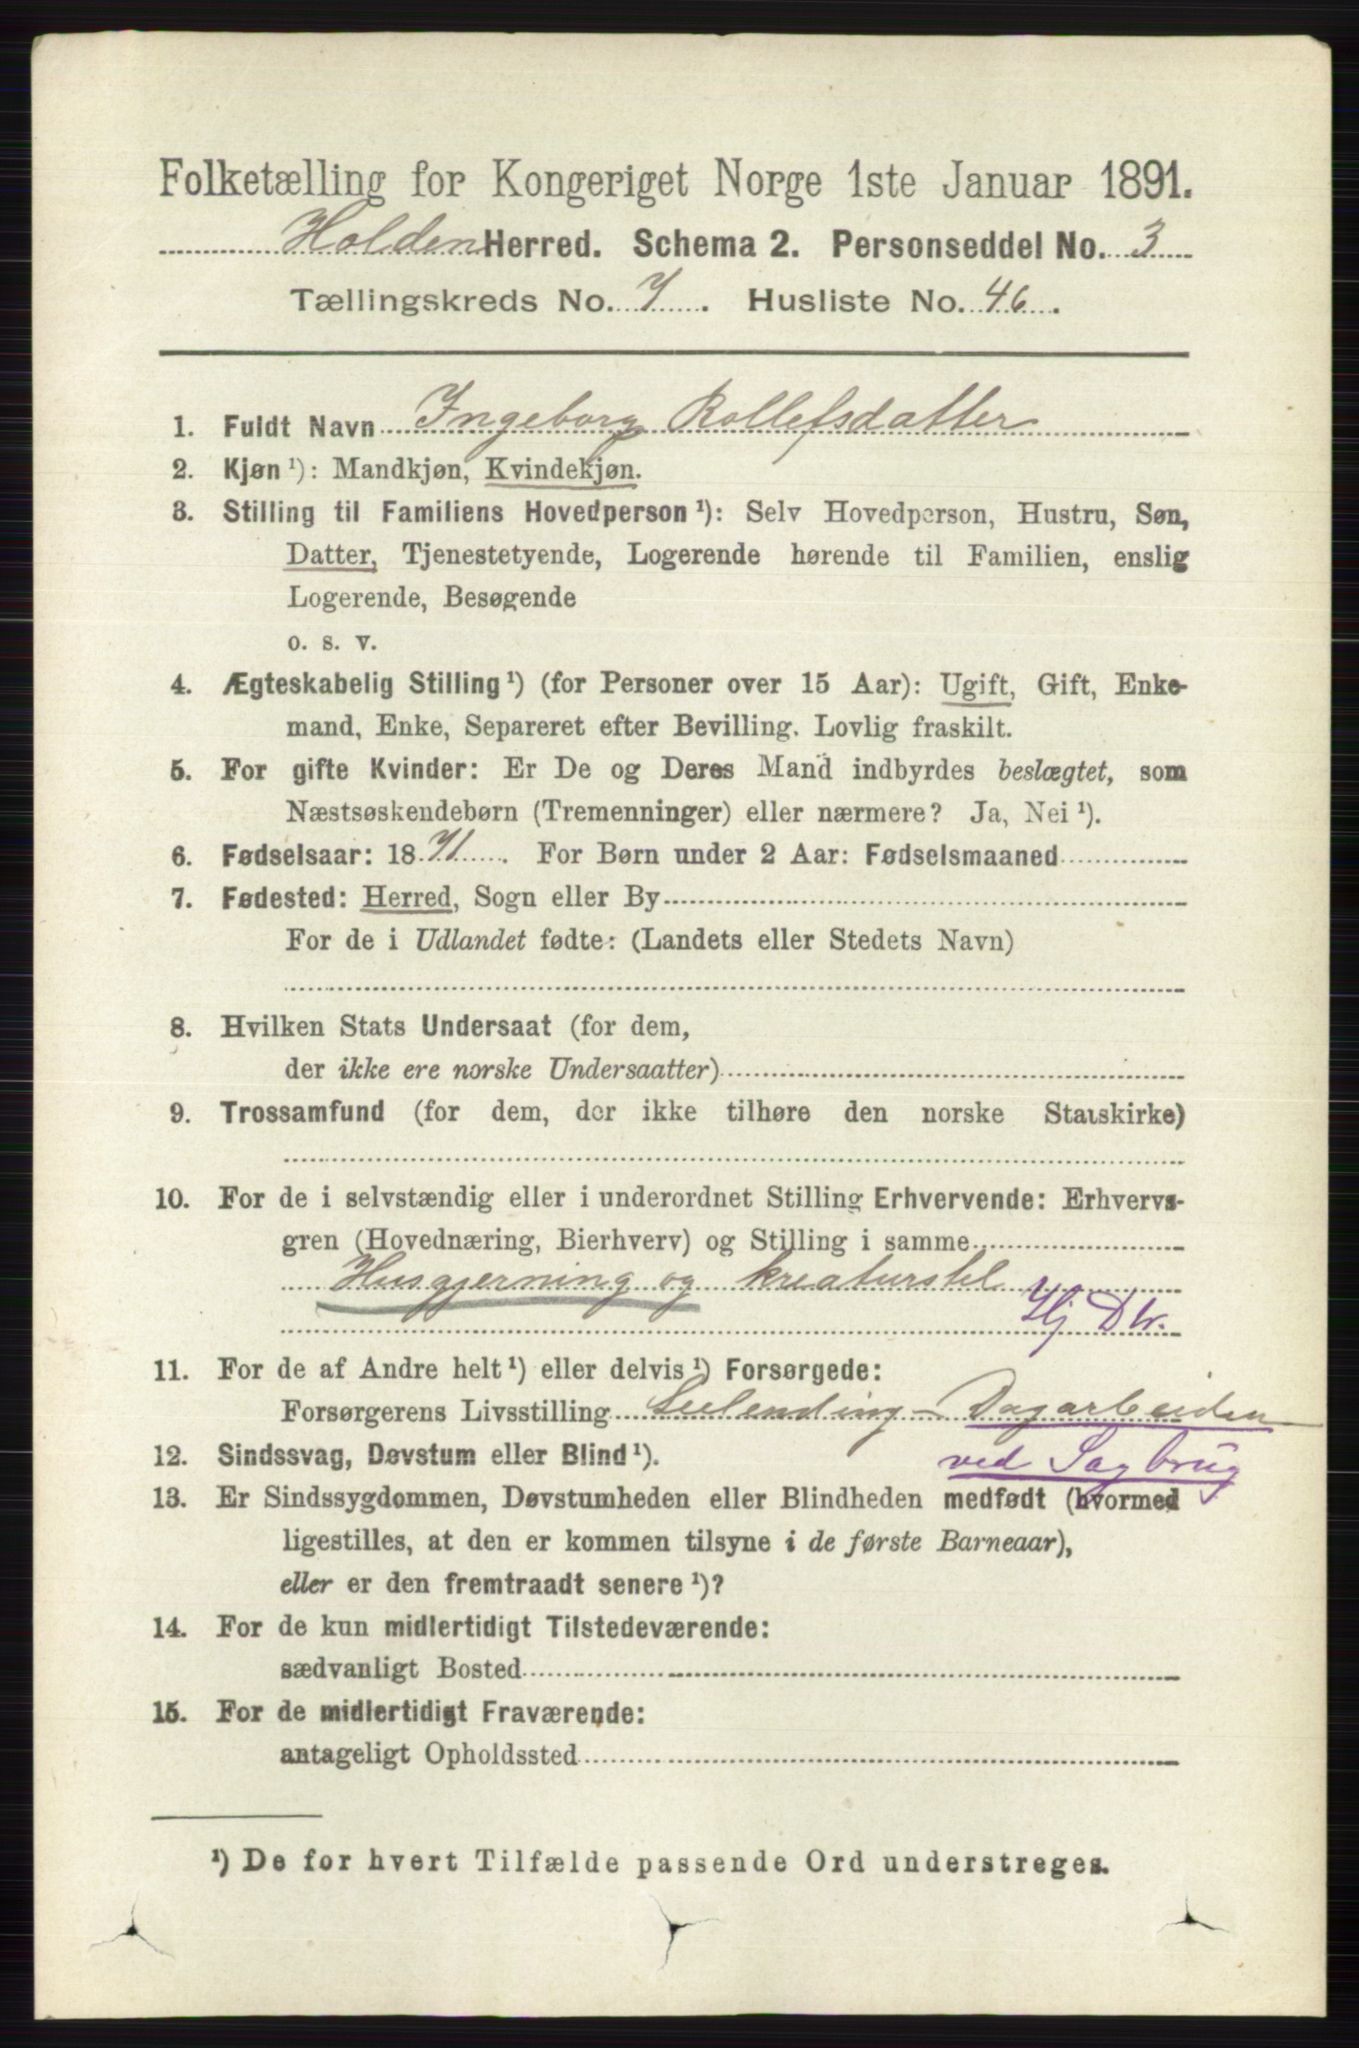 Folketælling for Kongeriget Norge 1ste Januar 1891.
Holden Herred. Schema 2. Personseddel No. 3
Tællingskreds No. 7. Husliste No. 46.
1. Fuldt Navn Ingeborg Rollefsdatter
2. Kjøn ¹): Mandkjøn, Kvindekjøn.
3. Stilling til Familiens Hovedperson ¹): Selv Hovedperson, Hustru, Søn,
Datter, Tjenestetyende, Logerende hørende til Familien, enslig
Logerende, Besøgende
o. s. v.
4. Ægteskabelig Stilling ¹) (for Personer over 15 Aar): Ugift, Gift, Enke-
mand, Enke, Separeret efter Bevilling. Lovlig fraskilt.
5. For gifte Kvinder: Er De og Deres Mand indbyrdes beslægtet, som
Næstsøskendebørn (Tremenninger) eller nærmere? Ja, Nei ¹).
6. Fødselsaar: 1871. For Børn under 2 Aar: Fødselsmaaned
7. Fødested: Herred, Sogn eller By
For de i Udlandet fødte: (Landets eller Stedets Navn)
8. Hvilken Stats Undersaat (for dem,
der ikke ere norske Undersaatter)
9. Trossamfund (for dem, der ikke tilhøre den norske Statskirke)
10. For de i selvstændig eller i underordnet Stilling Erhvervende: Erhvervs-
gren (Hovednæring, Bierhverv) og Stilling i samme
Husgjerning og kreaturstel
Hj Dtr.
11. For de af Andre helt ¹) eller delvis ¹) Forsørgede:
Forsørgerens Livsstilling Selvending - Dagarbeiden
12. Sindssvag, Døvstum eller Blind ¹).
ved Sagbrug
13. Er Sindssygdommen, Døvstumheden eller Blindheden medfødt (hvormed
ligestilles, at den er kommen tilsyne i de første Barneaar),
eller er den fremtraadt senere ¹)?
14. For de kun midlertidigt Tilstedeværende:
sædvanligt Bosted
15. For de midlertidigt Fraværende:
antageligt Opholdssted
¹) De for hvert Tilfælde passende Ord understreges.